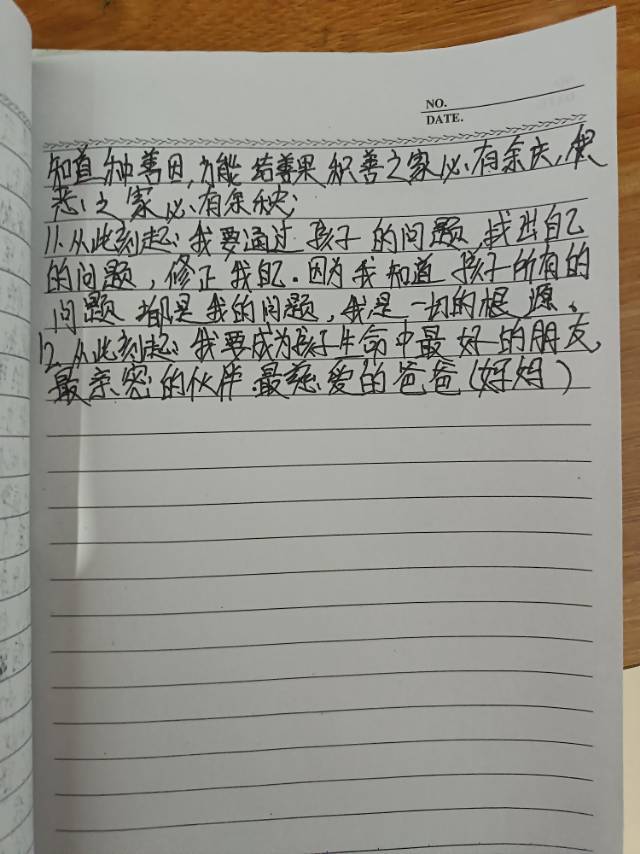 NO.
DATE.
知道种善因,才能结善果 积善之家必有余庆,积
恶之家必有余殃;
11.从此刻起:我要通过孩子的问题,找出自己
的问题,修正我自己.因为我知道孩子所有的
问题都是我的问题,我是一切的根源、
12.从此刻起:我要成为孩子生命中最好的朋友,
最亲密的伙伴.最慈爱的爸爸(妈妈)